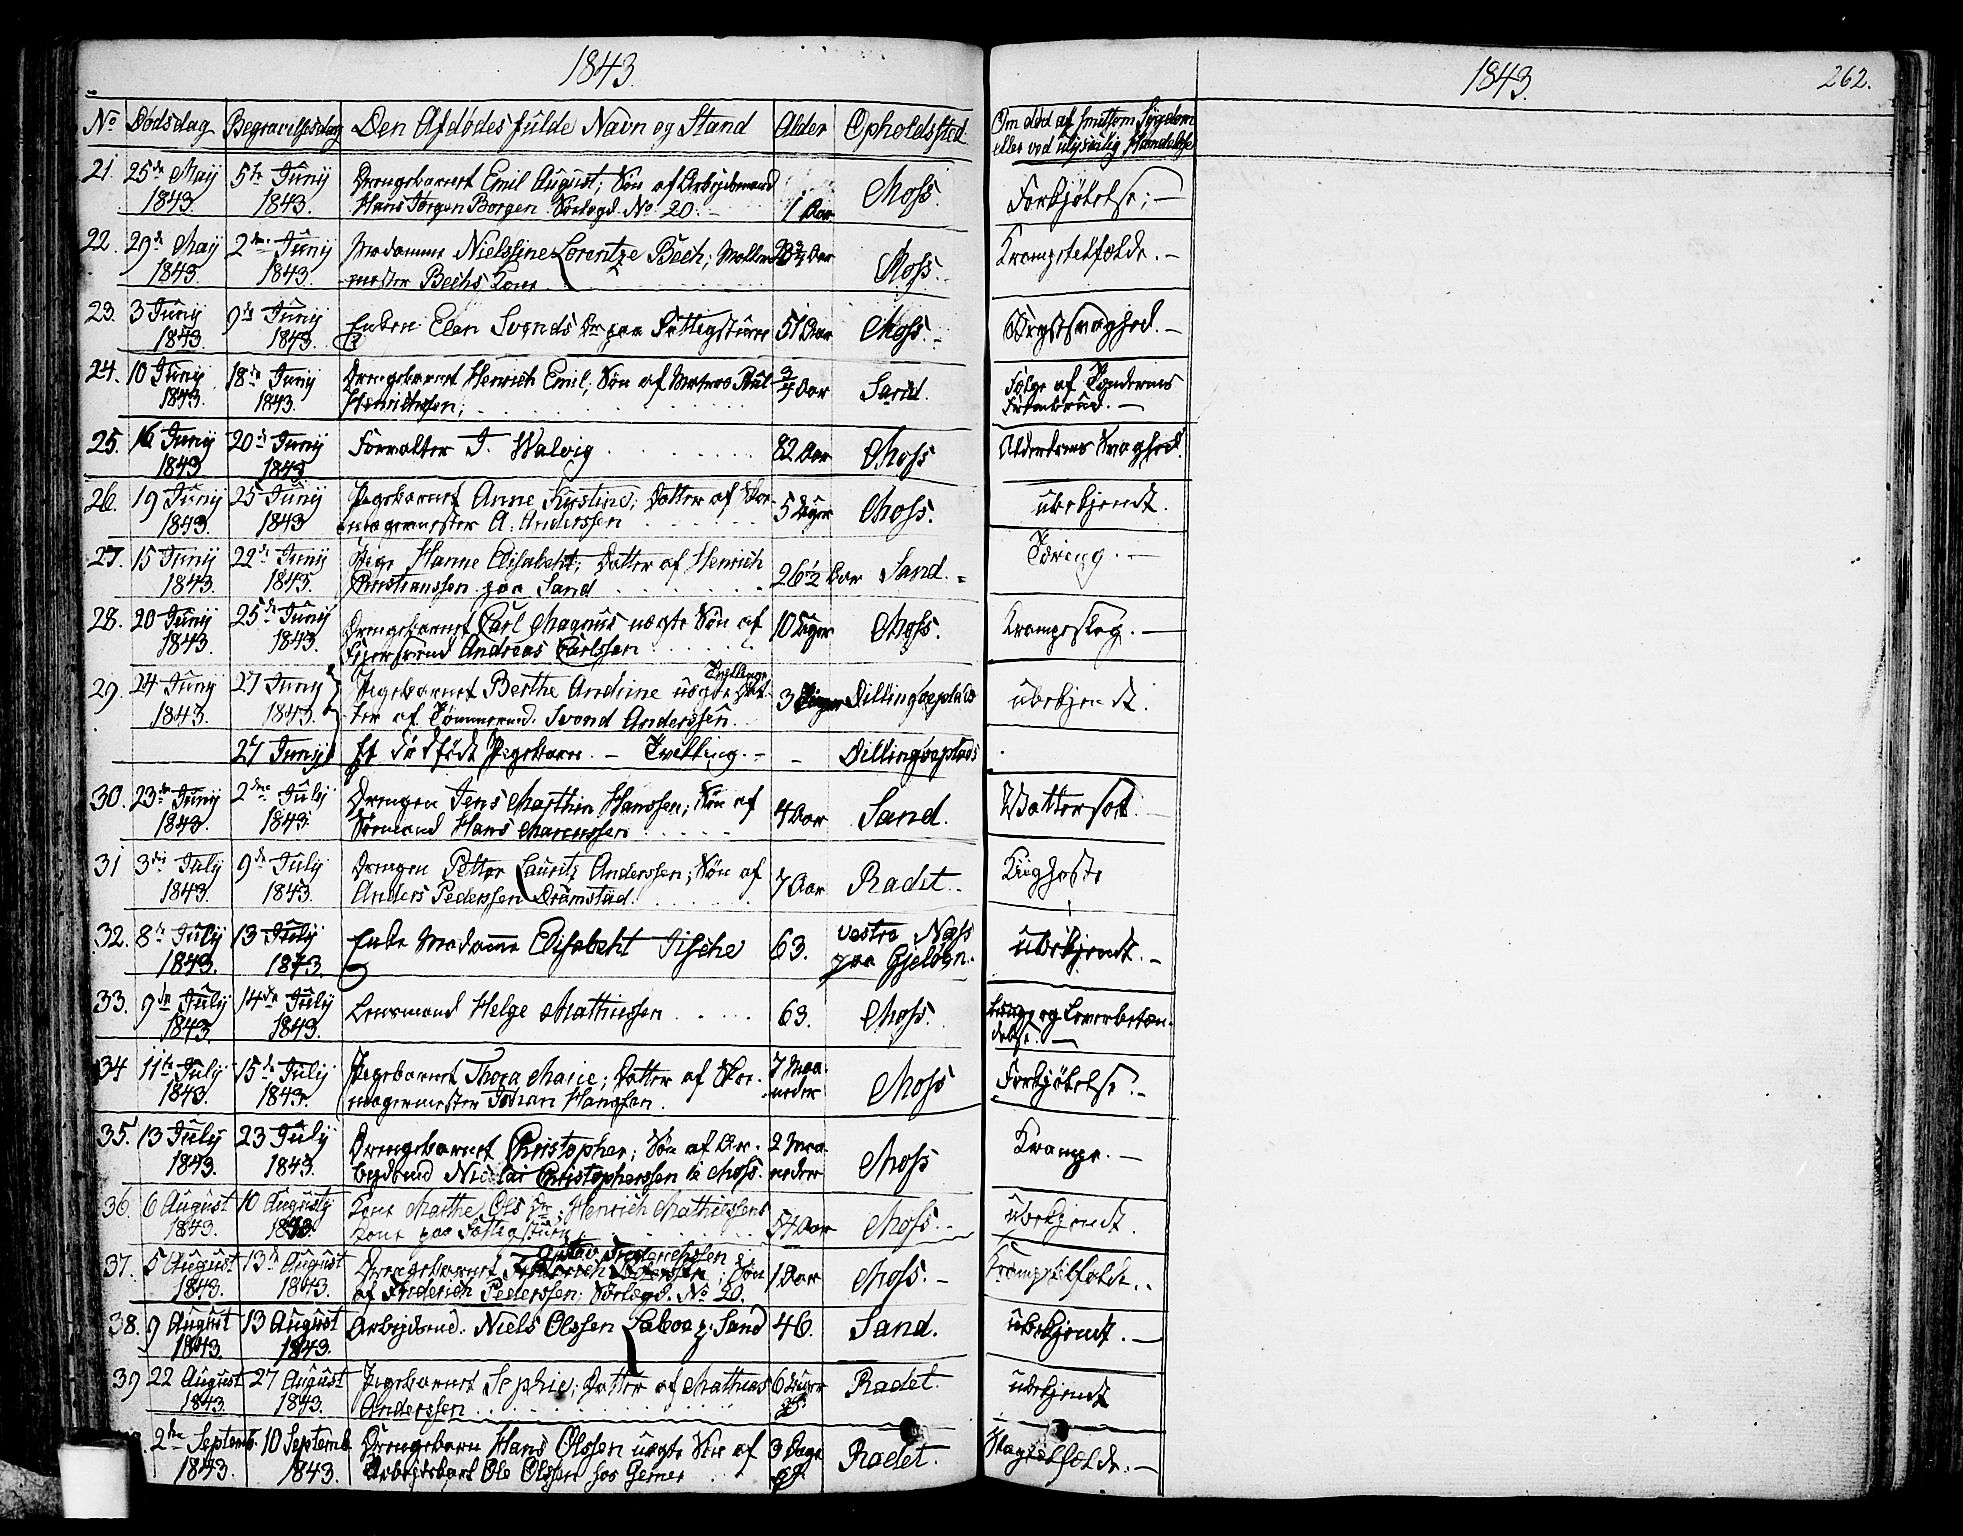 1843.
1843.
262.
No Dødsdag Begravelsesdag Den Afdødes fulde Navn og Stand Alder Opholdssted Om død af smitsom Sygdom
eller ved ulykkelig Hændelse
21. 25de Maij 5te Junij Drengebarnet Emil August; Søn af Arbeidsmand
1843. 1843. Hans Jørgen Borgen Sørlogd. No 20. 1 Aar Moss. Forkjølelse;
22. 29de Maij 2den Junij Madamme Nielssine Lorentze Bech; Møller
1843. 1843. mester Bechs Kone Aar Moss. Krampetilfælde.
23. 3 Junij 9de Junij Enken Elen Svends Dr paa Fattigstuen 51 Aar Moss. Brystsvaghed.
1843. 1843.
24. 10 Junij 18de Junij Drengebarnet Henrich Emil; Søn af Matros Poul 3/4 Aar Sand. Følge af
1843. 1843. Henrichssen;
25. 16 Junij 20de Junij Forvalter J. Walvig 82 Aar Moss Alderdoms Svaghed.
1843 1843
26. 19 Junij 25 Junij Pigebarnet Anne Kirstine; Datter af Skoe-
1843. 1843 magermester A: Anderssen 5 Uger Moss. ubekjendt.
27. 15 Junij 22de Junij Pige Hanne Elisabeht; Datter af Henrich
1843. 1843. Christianssen paa Sand 26 1/2 Aar Sand. Tæring.
28. 20 Junij 25de Junij Drengebarnet Carl Magnus uægte Søn af 10 Uger Moss. Krampeslag.
1843. 1843. Andreas Carlssen
29. 24 Junij 27 Junij Pigebarnet Berthe Andrine uægte Tvillinge Dat-
1843. 1843. ter af Tømmermd. Svend Anderssen. 3 Dillingøepladss ubekjendt.
27 Junij Et dødfødt Pigebarn. - Tvelling. - - Dillingøeplads
30. 23de Junij 2den Julij Drengen Jens Marthin Hanssen; Søn af
1843. 1843. Hans Marcussen 4 Aar Sand. Wattersot.
31 3die Julij 9de Julij Drengen Petter Lauritz Anderssen; Søn af
1843. 1843. Anders Pederssen Dramstad. 7 Aar Radet. Kighoste
32. 8de Julij 13 Julij Enke Madame Elisabeht Fische 63. vestre Næss
1843. 1843. paa Gjeløen. ubekjendt.
33. 9de Julij 14de Julij Lensmand Helge Mathiessen 63. Moss. Lunge og Leverbetæn-
1843. 1843. delse.
34 11te Julij 15de Julij Pigebarnet Thora Marie; Datter af Skoe- 7 Maa-
1843. 1843. magermester Johan Hanssen. neder Moss Forkjølelse.
35. 13 Julij 23 Julij Drengebarnet Christopher; Søn af Ar- 2 Maa-
1843. 1843. beidsmd Nicolai Christopherssen i Moss. neder Moss Krampe.
36. 6 August 10 Augustij Kone Marthe Ols Dr; Henrich Mathiessens
1843. 1843. Kone paa Fattigstuen 54 Aar Moss. ubekjendt.
37. 5 August 13de August Drengebarnet Gustav Frederichssen; Søn
1843. 1843. af Frederich Pederssen; Sørlogd. No 20. 1 Aar Moss. Krampetilfælde.
38. 9 August 13 August Arbeidsmd. Niels Olssen Laboe p: Sand 46. Sand. ubekjendt.
1843. 1843.
39 22 August 27 August Pigebarnet Sophie; Datter af Mathias 6 Uger Radet. ubekjendt
1843. 1843. Anderssen gl.
2den Septemb. 10 Septemb. Drengebarn Hans Olssen uægte Søn af 3 Dage Radet. Slagtilfælde.
1843. 1843. Ole Olssen hos Gerner gl.